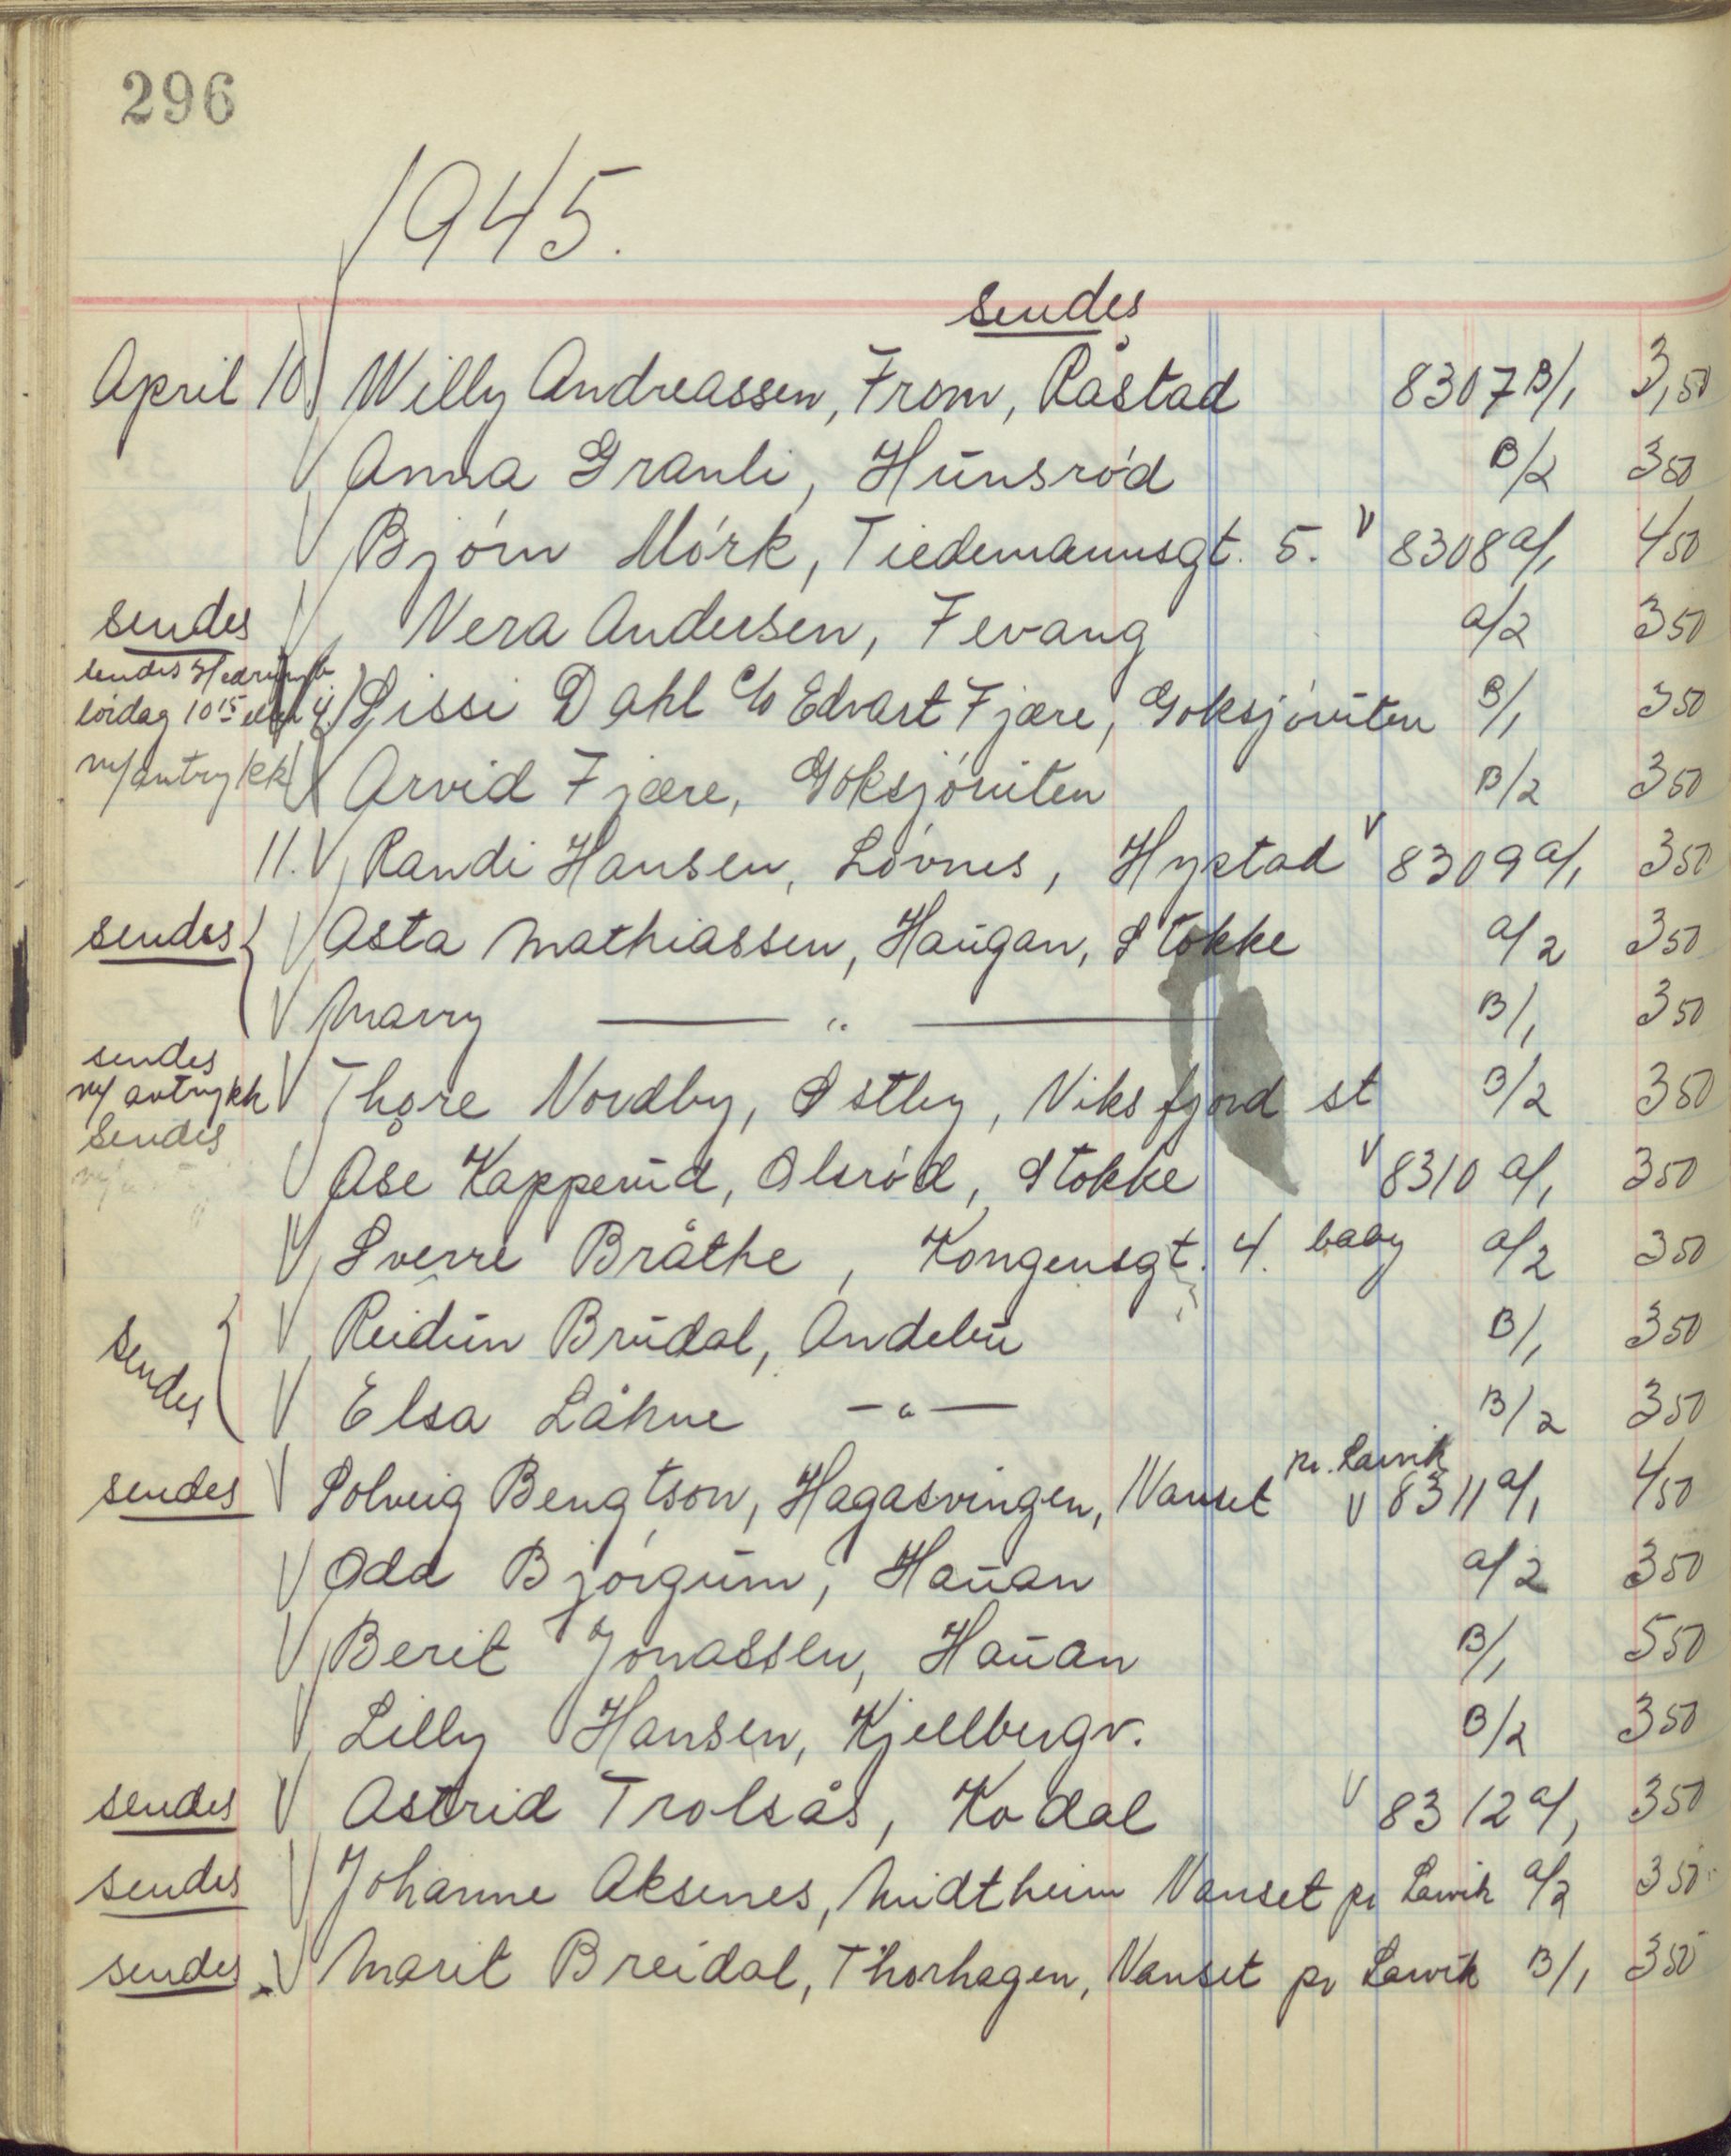 296
1945.
sendes
April 10. V Willy Andreassen, From, Råstad 8307 B/1 3,50
V Anna Granli, Hūnsród B/2 350
V Bjórn Mórk, Tiedemannsgt. 5. V 8308 a/1 450
sendes V Vera Andersen, Fevang a/2 350
sendes
lórdag 10 15 V Lissi Dahl c/o Edvart Fjære, Goksjóruten B/1 350
m/avtrykk V Arvid Fjære, Goksjóruten B/2 350
11. V Randi Hansen, Lóvnes, Hystad V 8309 a/1 350
sendes { V Asta Mathiassen, Haūgan, Stokke a/2 350
V Marry — " — B/1 350
sendes
m/ avtrykk V Thore Nordby, Østby, Viksfjord st B/2 350
sendes
V Åse Kapperūd, Olsród, Stokke V 8310 a/1 350
V Sverre Bråthe, Kongensgt. 4. baby a/2 350
sendes { V Reidūn Brūdal, Andebū B/1 350
V Elsa Låhne — " — B/2 350
pr. Larvik
sendes V Solveig Bengtson, Hagasvingen, Nanset V 8311 a/1 450
V Odd Bjórgūm, Haūan a/2 350
V Berit Jonassen, Haūan B/1 550
V Lilly Hansen, Kjellbergv. B/2 350
sendes V Astrid Trolsås, Kodal V 8312 a/1 350
sendes V Johanne Aksenes, Midtheim Nanset pr Larvik a/2 350
sendes V Marit Breidal, Thorhagen, Nanset pr Larvik B/1 350